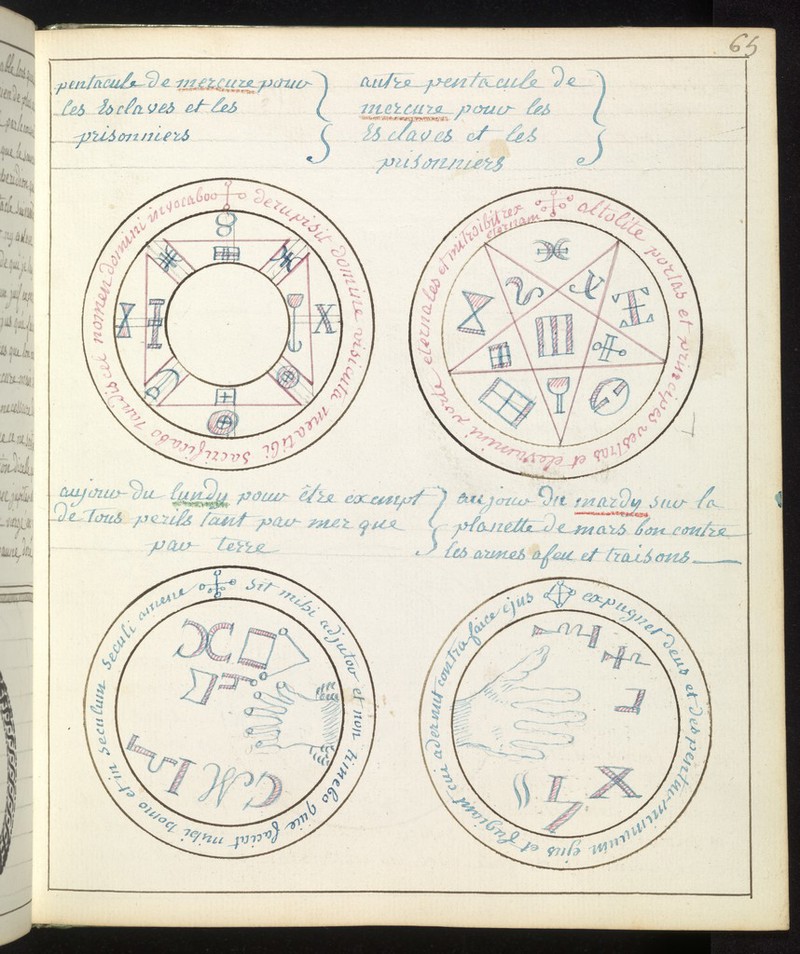 65
pentacule de mercure pour
les Esclaves et les
prisonniers
autre pentacule de
mercure pour les
Esclaves et les
prisonniers
derupisit domine visiculla mea tibi sacrificabo nomen domini invocaboo
attolite portas et principes vestras et elevamini porte eternales et introibit rex
eternam
aujour du lundy pour être exempt
de tous perils tant par mer que
par terre
au jour du mardy sur la
planette de mars bon contre
les armes a feu et traisons
sit mihi adjutor et non timebo quie faciat mihi homo et in seculum seculi amene
expugnet deus et et fugiant cui adernut contra faice ejus